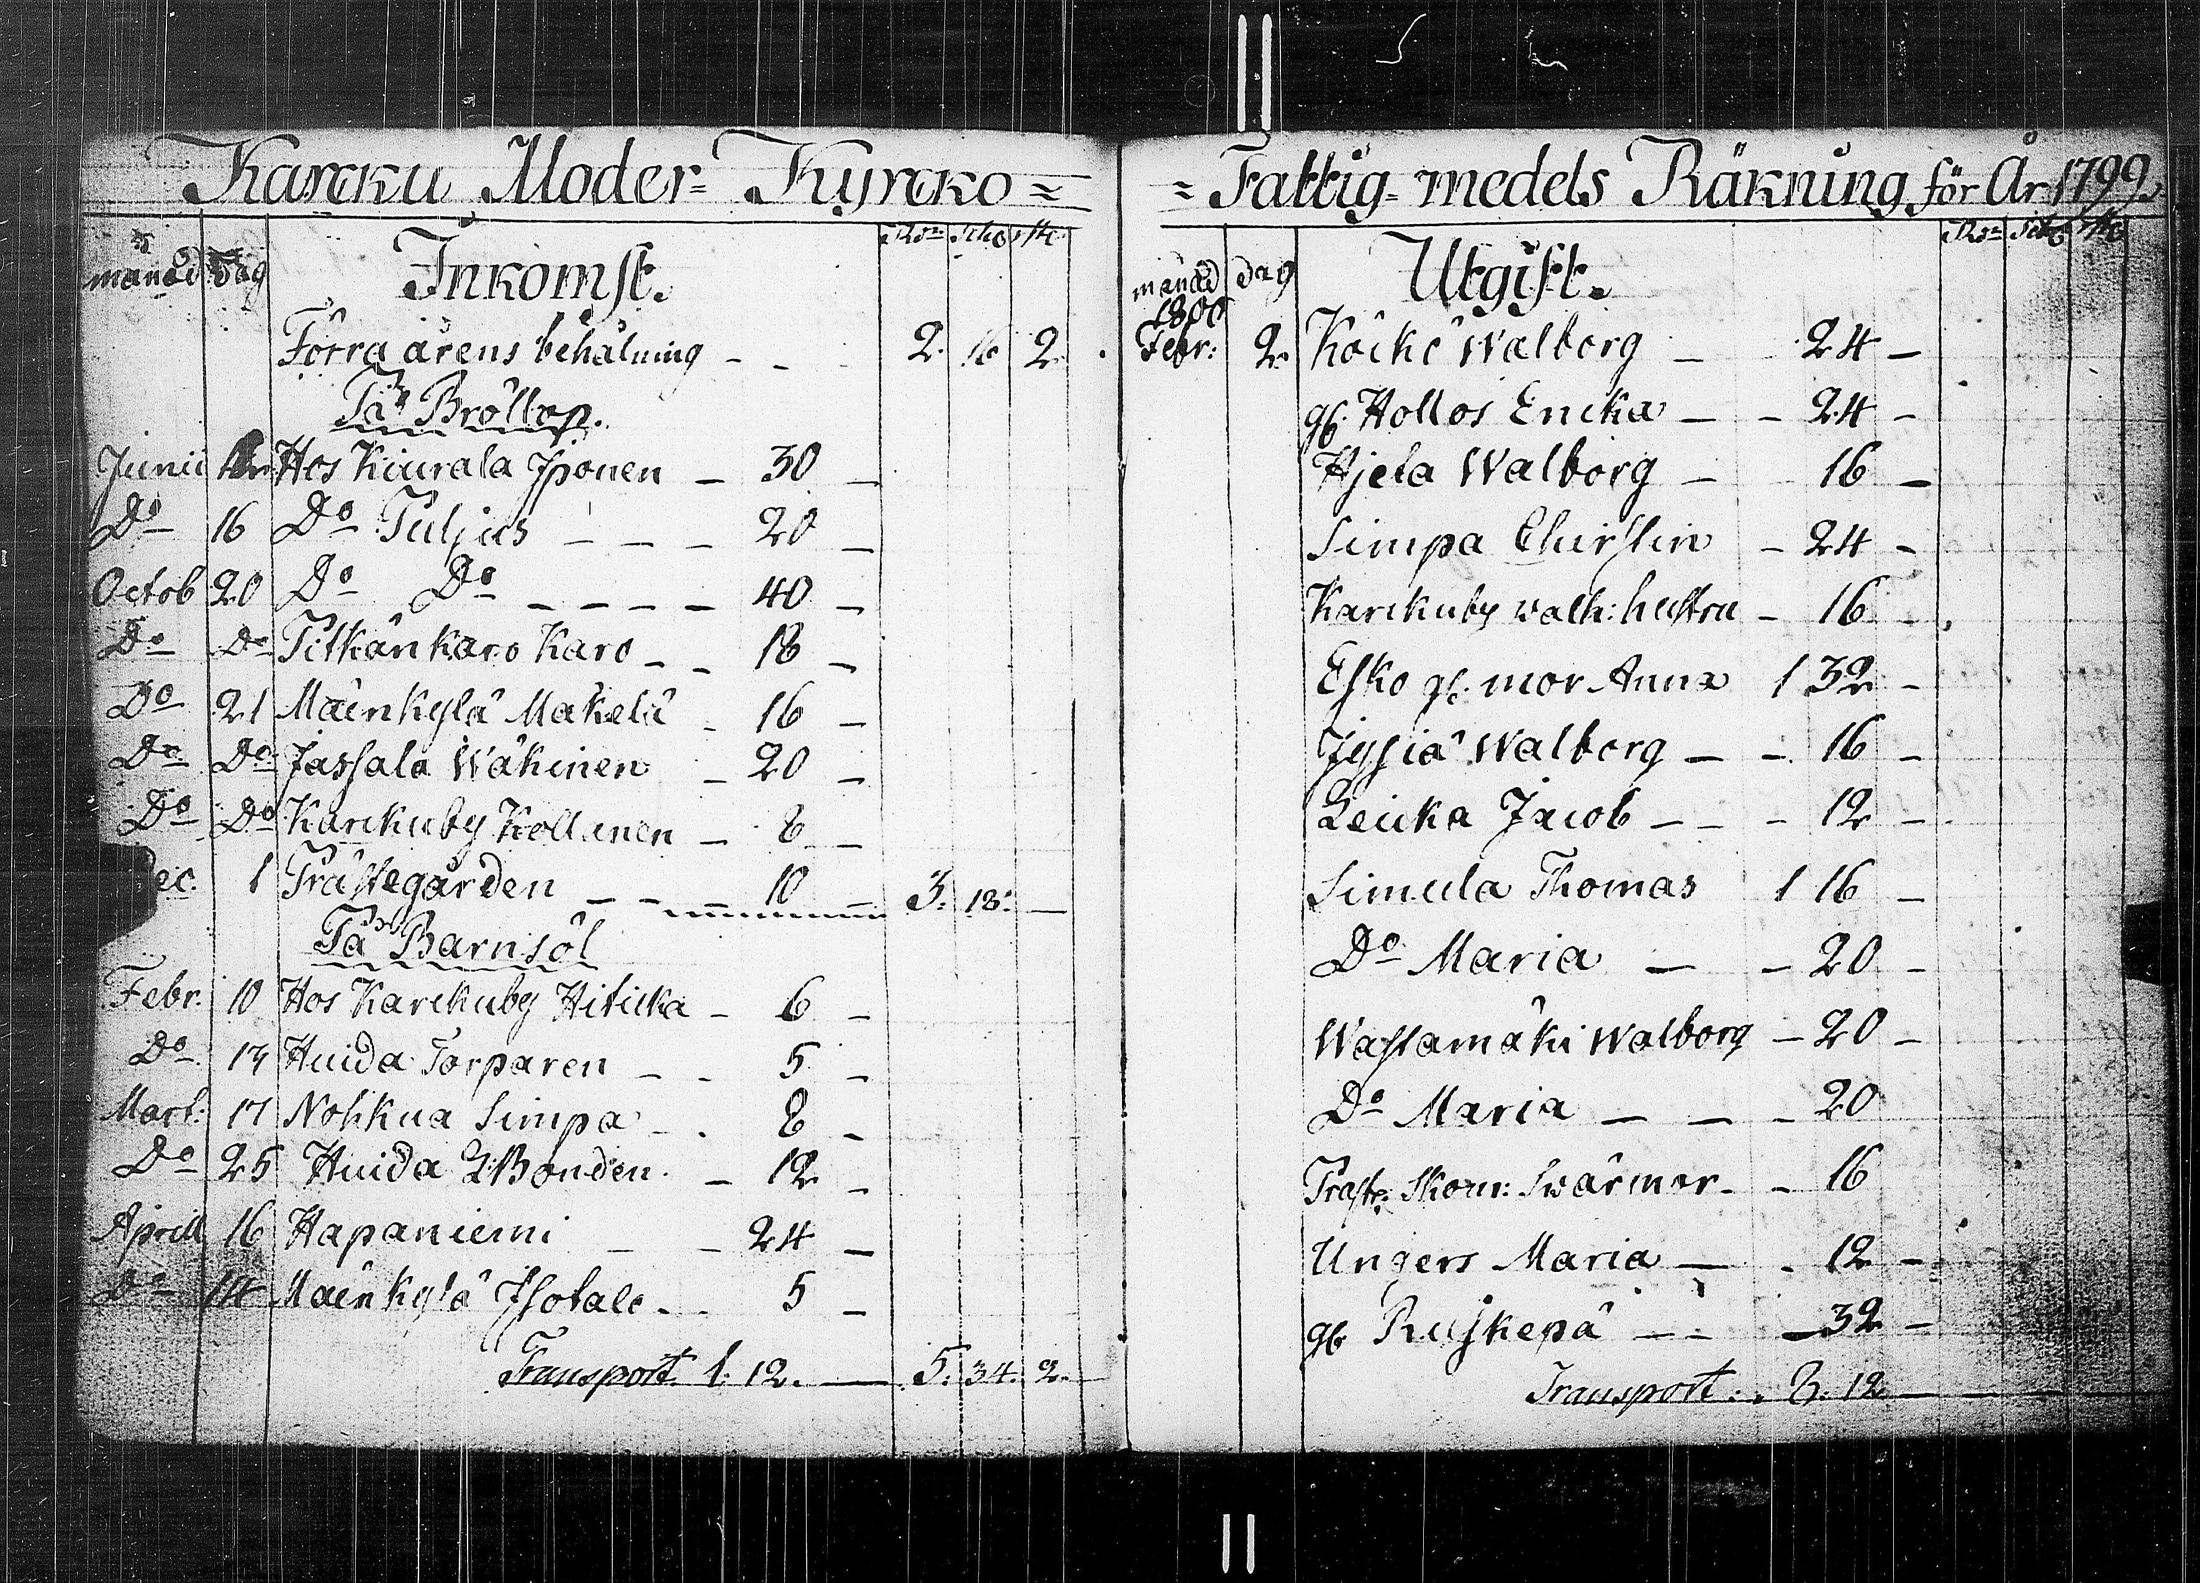 Karcku Moder= Kyrcko =
månad Dag Inkomst. R:dr Sch: rst:
Förra årens behålning - - 2. 16 2.
På Bröllop.
Junii Hos Kiurala Iponen - 30 -
Do 16 Do Puljus - - - 20 -
Octob 20 Do Do - - - - 40 -
Do Do Pitkänkaro Karo - - 18 -
Do 21 Mäinkylä Makelä - 16 -
Do Do Jassala Wäkinen - 20 -
Do Do Karckuby Kollanen - 8 -
Dec. 1 Prästegården - - - 10 - 3. 18. -
På Barnsöl
Febr. 10 Hos Karckuby Hiticka - 6 -
Do 17 Huida Torparen - - 5 -
Mart: 17 Nohkua Simpa - . 8 -
Do 25 Huida Bonden. - 12 -
Aprill 16 Hapaniemi - - 24 -
Do 14 Mäinkylä Isotalo - - 5 -
Transport. 1. 12. - 5. 34. 2. -
= Fattig= medels Räkning för År 1799.
månad dag Utgift. R:dr Sch: rst:
1800
Febr: 2. Köckö Walborg - - 24 -
gl. Hollos Ericka - - 24 -
Hjeta Walborg - 16 -
Simpa Chirstin - 24 -
Karckuby valh: hustru - 16 -
Esko gl. mor Anna 1 32 -
Jysiä Walborg - - 16 -
Leucka Jacob - - - 12 -
Simula Thomas 1 16 -
Do Maria - - 20 -
Wastamäki Walborg - 20 -
Do Maria - - - 20
Präste. Skom: Swärmor - - 16
Ungers Maria - - 12 -
gl. Ruskepä - - - 32 -
Transport. . 8. 12. -